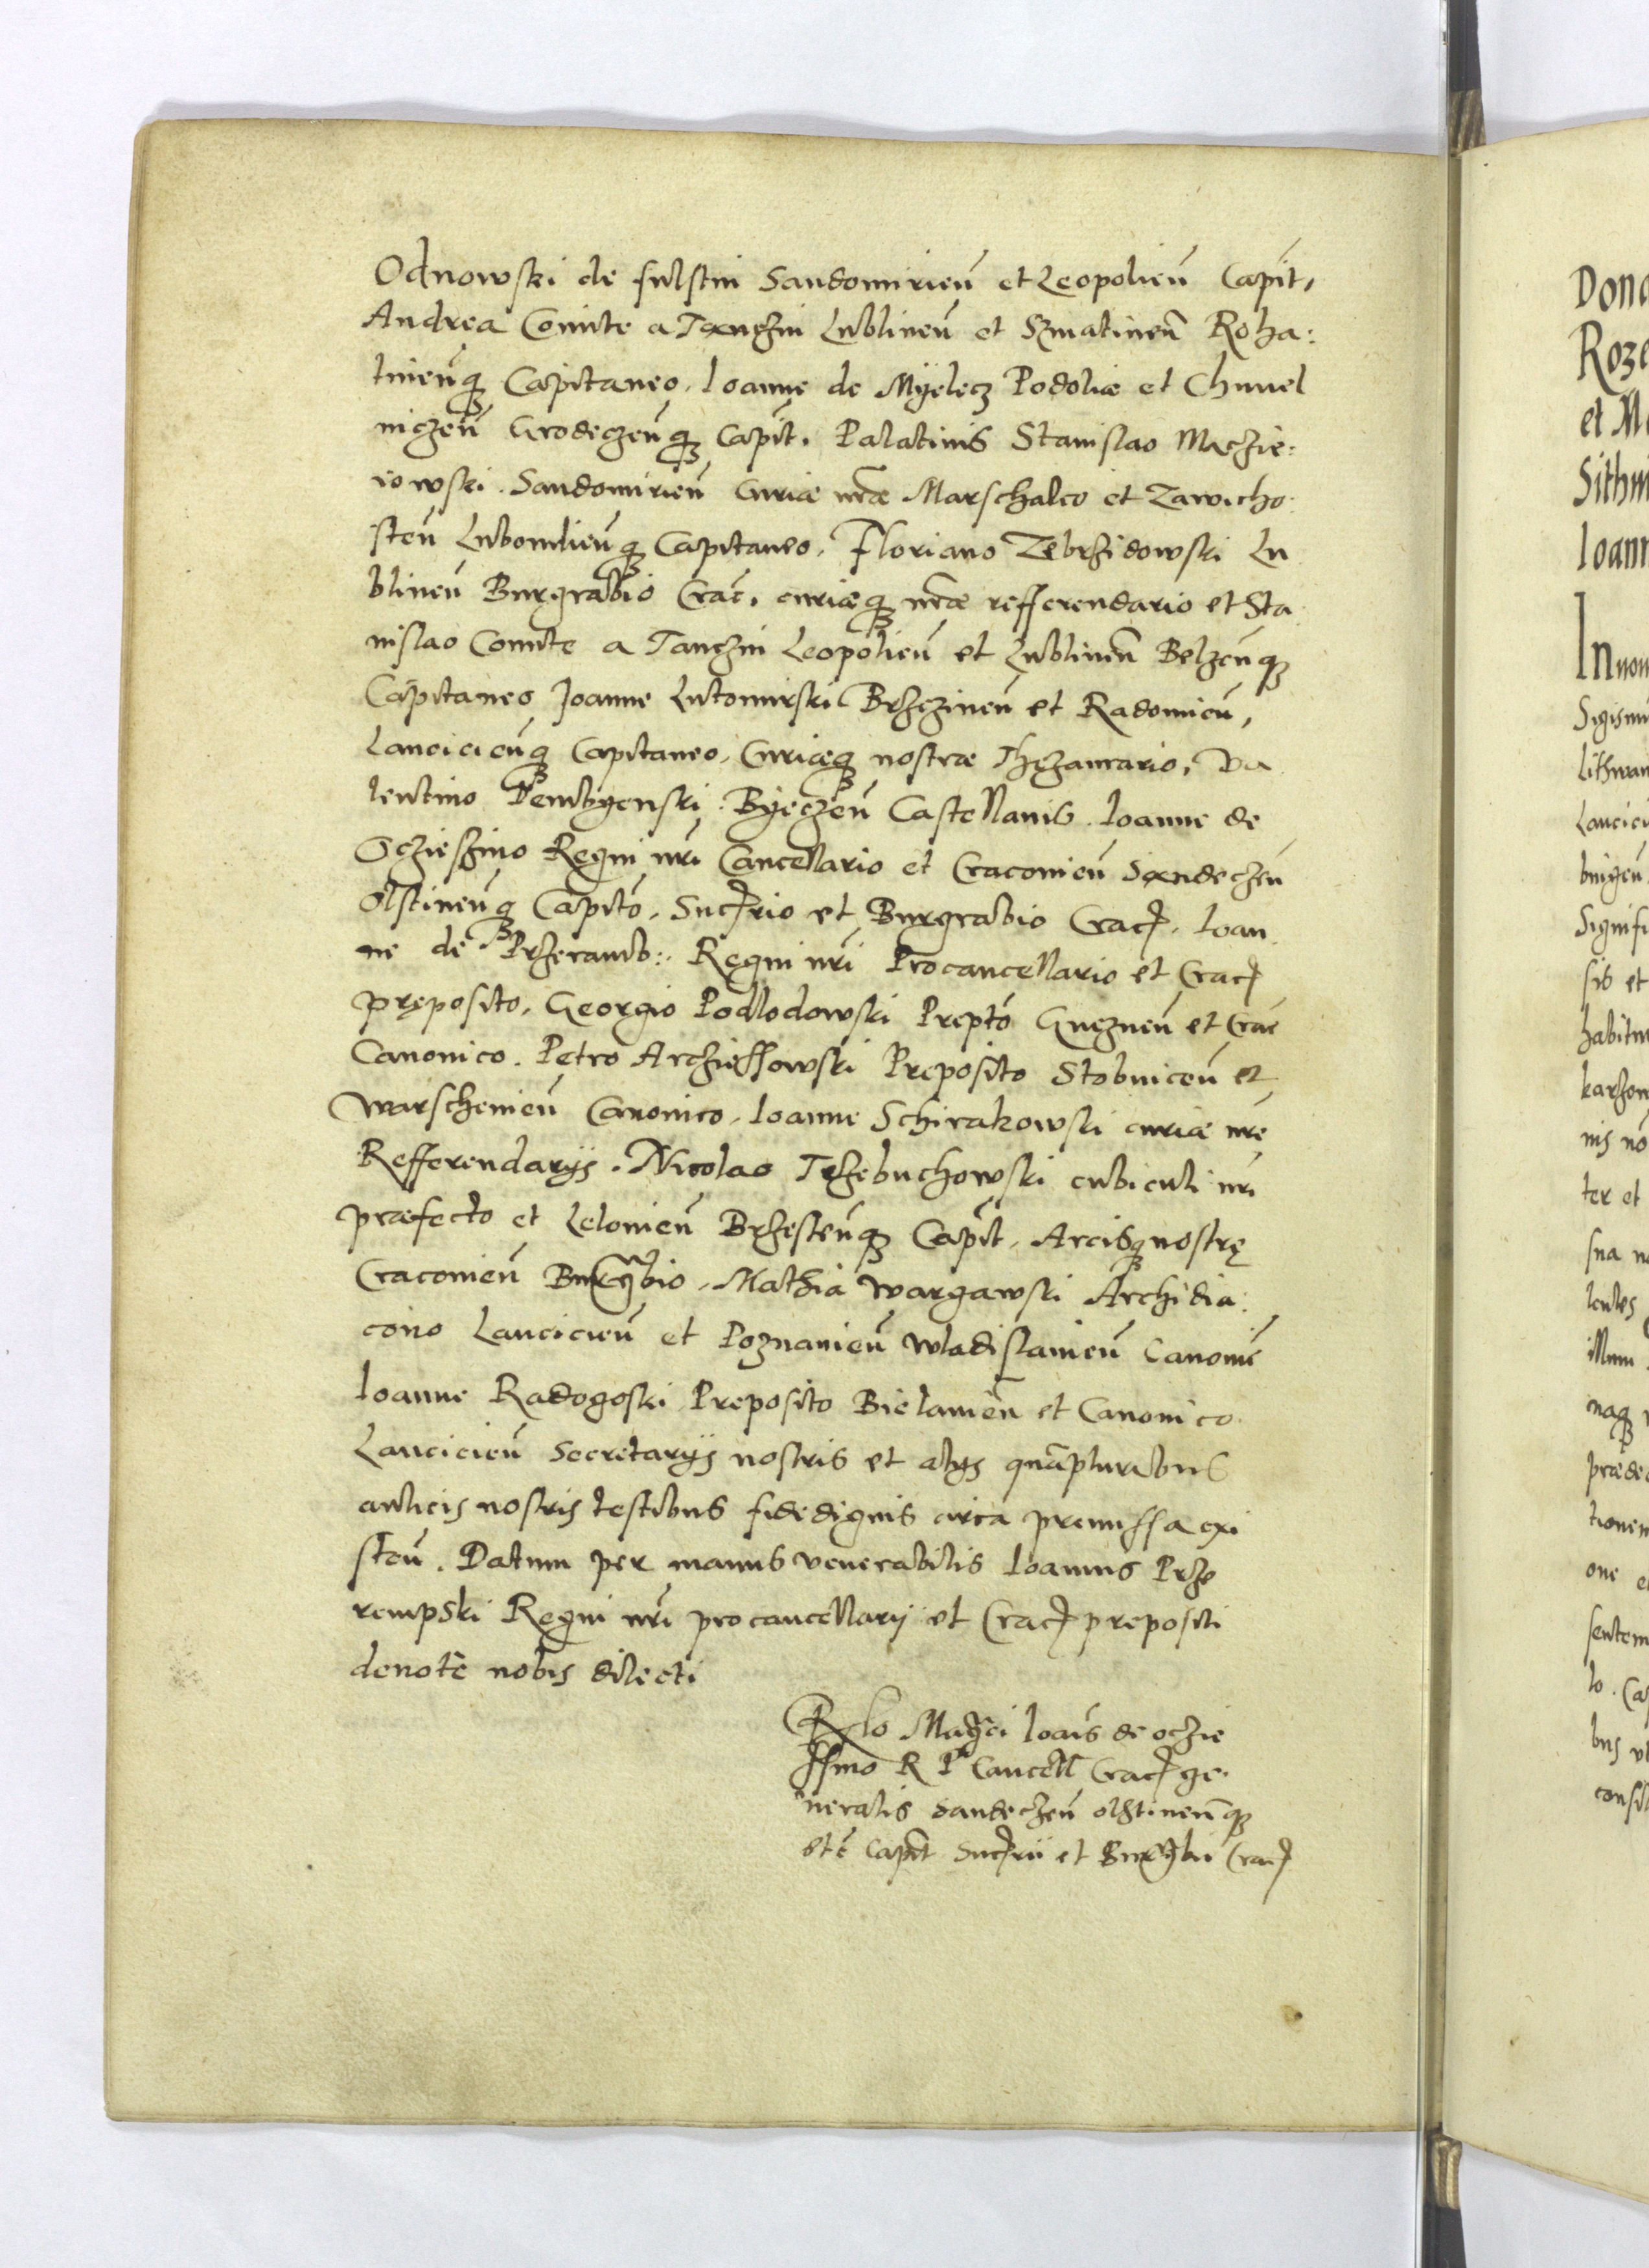 Odnowski de fulstin Sandomirien̄ et Leopolien̄ Capit,
Andrea Comite a Tanczin Lublinen̄ et Szniatinen̄ Roha:
tinen̄q₃ Capitaneo, Ioanne de Myelecz Podoliæ et Chmel
niczen̄ Grodeczen̄q₃ Capit. Palatinis Stanislao Maczie:
iowski. Sandomirien̄ Curiæ nr̄æ Marschalco et Zawicho:
sten̄ Lubomlien̄q₃ Capitaneo, Floriano Zebrzidowski Lu
blinen̄ Burgrabio Crac̄, curiæq₃ nr̄æ refferendario et Sta
nislao Comite a Tanczin Leopolien̄ et Lublinen̄ Belzen̄q₃
Capitaneo Joanne Lutomirski Brzezinen̄ et Radomien̄,
Lancicien̄q₃ Capitaneo, Curiæq₃ nostræ Thezaurario, Va
lentino Dembyenski. Byeczen̄ Castellanis. Ioanne de
Oczieszino Regni nr̄i Cancellario et Cracouien̄ Sandeczen̄
Olstinen̄q₃ Capitō, Succ̄rio et Burgrabio Crac̄, Ioan
ne de Przeramb: Regni nr̄i Procancellario et Crac̄
pręposito, Georgio Podlodowski Preptō Gneznen̄ et Crac̄
Canonico. Petro Arcziessowski Preposito Stobnicen̄ et
Warschouien̄ Canonico, Ioanne Schirakowski curiæ nr̄ę
Refferendarijs. Nicolao Trzebuchowski cubiculi nr̄i
præfecto et Lelouien̄ Brzesten̄q₃ Capit, Arcisq₃ nostrę
Cracouien̄ Burgbio, Mathia Wargawski Archidia:
cono Lancicien̄ et Poznanien̄ Wladislauien̄ Canonic̄
Ioanne Radogoski Preposito Bielauien̄ et Canonico
Lancicien̄ Secretarijs nostris et alijs quāpluribus
aulicis nostris testibus fidedignis circa premissa exi
sten̄. Datum per manus venerabilis Ioannis Prze
rempski Regni nr̄i procancellarij et Crac̄ prepositi
deuotè nobis dilecti
Rēlo Mag̃ci Ioan̄s de oczie
ssino R P Cancell Crac̄ ge.
neralis Sandeczen̄ olstinen̄q₃
etc̄ Capit Succ̄rii et Burgbii Crac̄
Dono
Roze
et Ma
Sithni
Ioann
In nom
Sigismu
Lithwan
Lancici
Signifi
sis et
habitu
nis nō
ter et
sua n
illum
naq₃
tionem
one e
sentem
lo. Ca
bus vt
consil